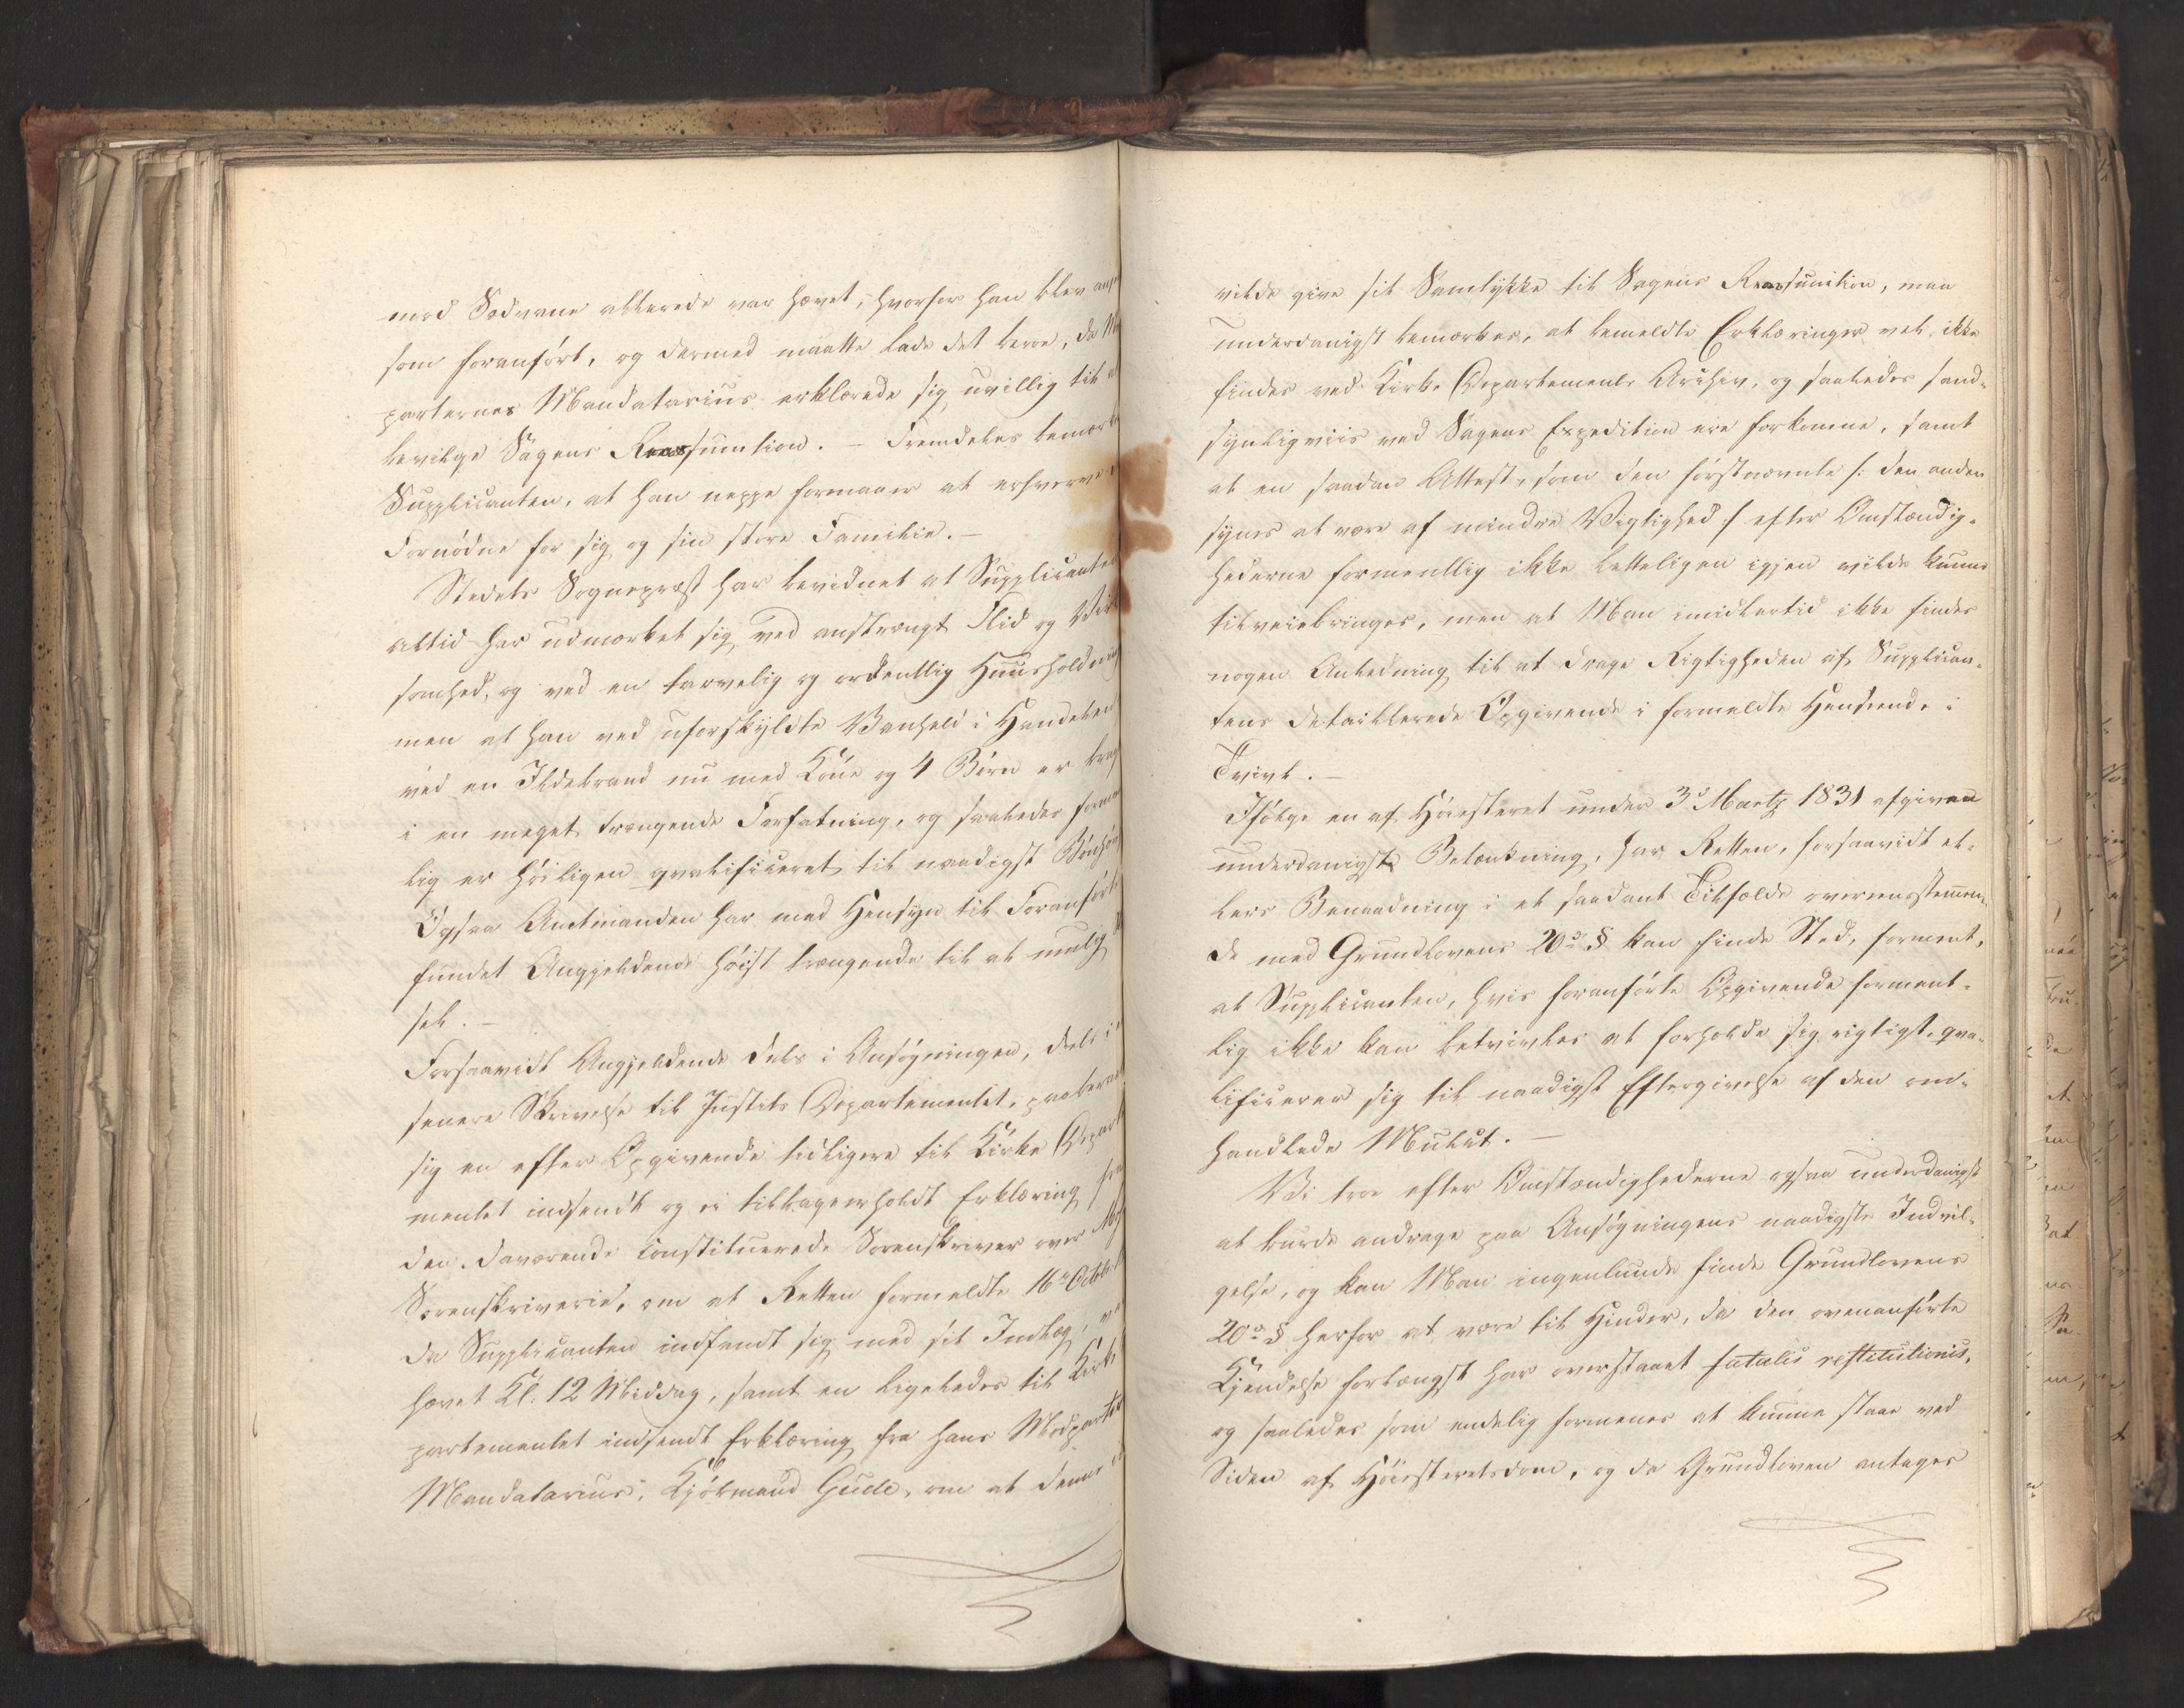 mod Sædvane allerede var hævet, hvorfor han blev
som foranført, og dermed maatte lade det beroe, da
parternes Mandatarius erklærede sig uvillig til
bevilge Sagens Reassumtion. – Fremdeles bemær
Supplicanten, at han neppe formaaer at erhverve
Fornødne for sig og sin store Familie. –
Stedets Sognepræst har bevidnet at Supplicanten
altid har udmærket sig ved anstrængt Flid og Vir
somhed, og ved en tarvelig og ordentlig Huusholdning
men at han ved uforskyldte Vanheld i Handelen
ved en Ildebrand nu med Kone og 4 Børn er brag
i en meget trængende Forfatning, og saaledes forme
lig er høiligen qvalificeret til naadigst Bønhør
Ogsaa Amtmanden har med Hensyn til Foranførte
fundet Angjeldende høist trængende til at
sel. –
Forsaavidt Angjeldende dels i Ansøgningen, dels i
senere Skrivelse til Justits Departementet, paaberaa
sig en efter Opgivende tidligere til Kirke Depart
mentet indsendt og ei tilbageerholdt Erklæring fra
den daværende constituerede Sorenskriver over
Sorenskriverie, om at Retten formeldte 16de Octbr
da Supplicanten indfandt sig med sit Indlæg, va
hævet Kl. 12 Middag, samt en ligeledes til Kirke
partementet indsendt Erklæring fra hans Modparter
Mandatarius, Kjøbmand Gude, om at denne
vilde give sit Samtykke til Sagens Reassumtion, maa
underdanigst bemærkes, at bemeldte Erklæringer vel ikke
findes ved Kirke Departements Archiv, og saaledes sand-
synligviis ved Sagens Expedition ere forkomne, samt
at en saadan Attest, som den førstnævnte /: den anden
synes at være af mindre Vigtighed :/ efter Omstændig-
hederne formentlig ikke letteligen igjen vilde kunne
tilveiebringes, men at Man imidlertid ikke finder
nogen Anledning til at drage Rigtigheden af Supplican-
tens detaillerede Opgivende i formeldte Henseende, i
Tvivl. –
Ifølge en af Høiesteret under 3de Martz 1831 afgiven
underdanigst Betænkning, har Retten, forsaavidt el-
lers Benaadning i et saadant Tilfælde overeensstemmen-
de med Grundlovens 20de § kan finde Sted, forment,
at Supplicanten, hvis foranførte Opgivende forment-
lig ikke kan betvivles at forholde sig rigtigt, qva-
lificerer sig til naadigst Eftergivelse af den om-
handlede Mulct. –
Vi troe efter Omstændighederne ogsaa underdanigst
at burde andrage paa Ansøgningens naadigste Indvil-
gelse, og kan Man ingenlunde finde Grundlovens
20de § herfor at være til Hinder, da den ovenanførte
Kjendelse forlængst har overstaaet fatalis restitutionis,
og saaledes som endelig formenes at kunne staae ved
Siden af Høiesteretsdom, og da Grundloven antages